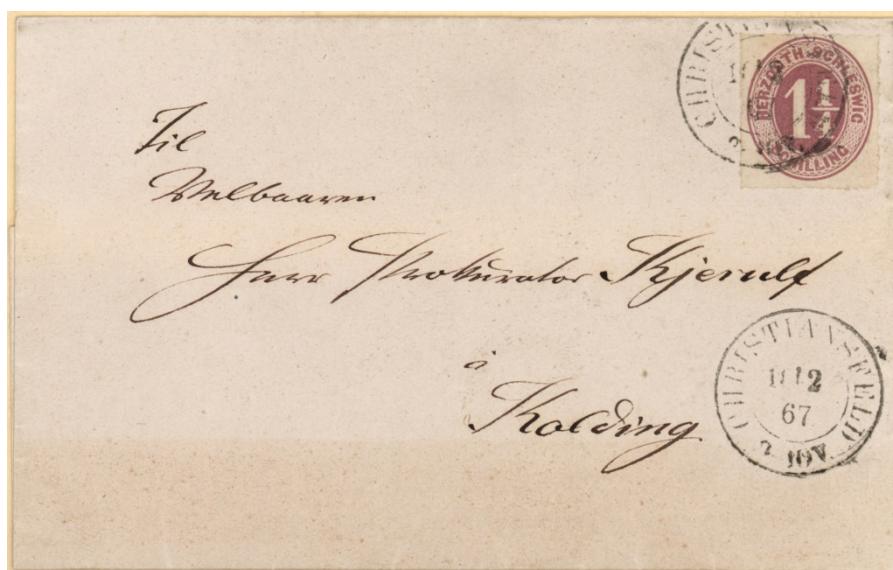 HERZOGTH. SCHLESWIG
1 1/4
SCHILLING
Til
Velbaaren
Herr Prokurator Kjerulf
à
Kolding
CHRISTIANSFELD
18 12
67